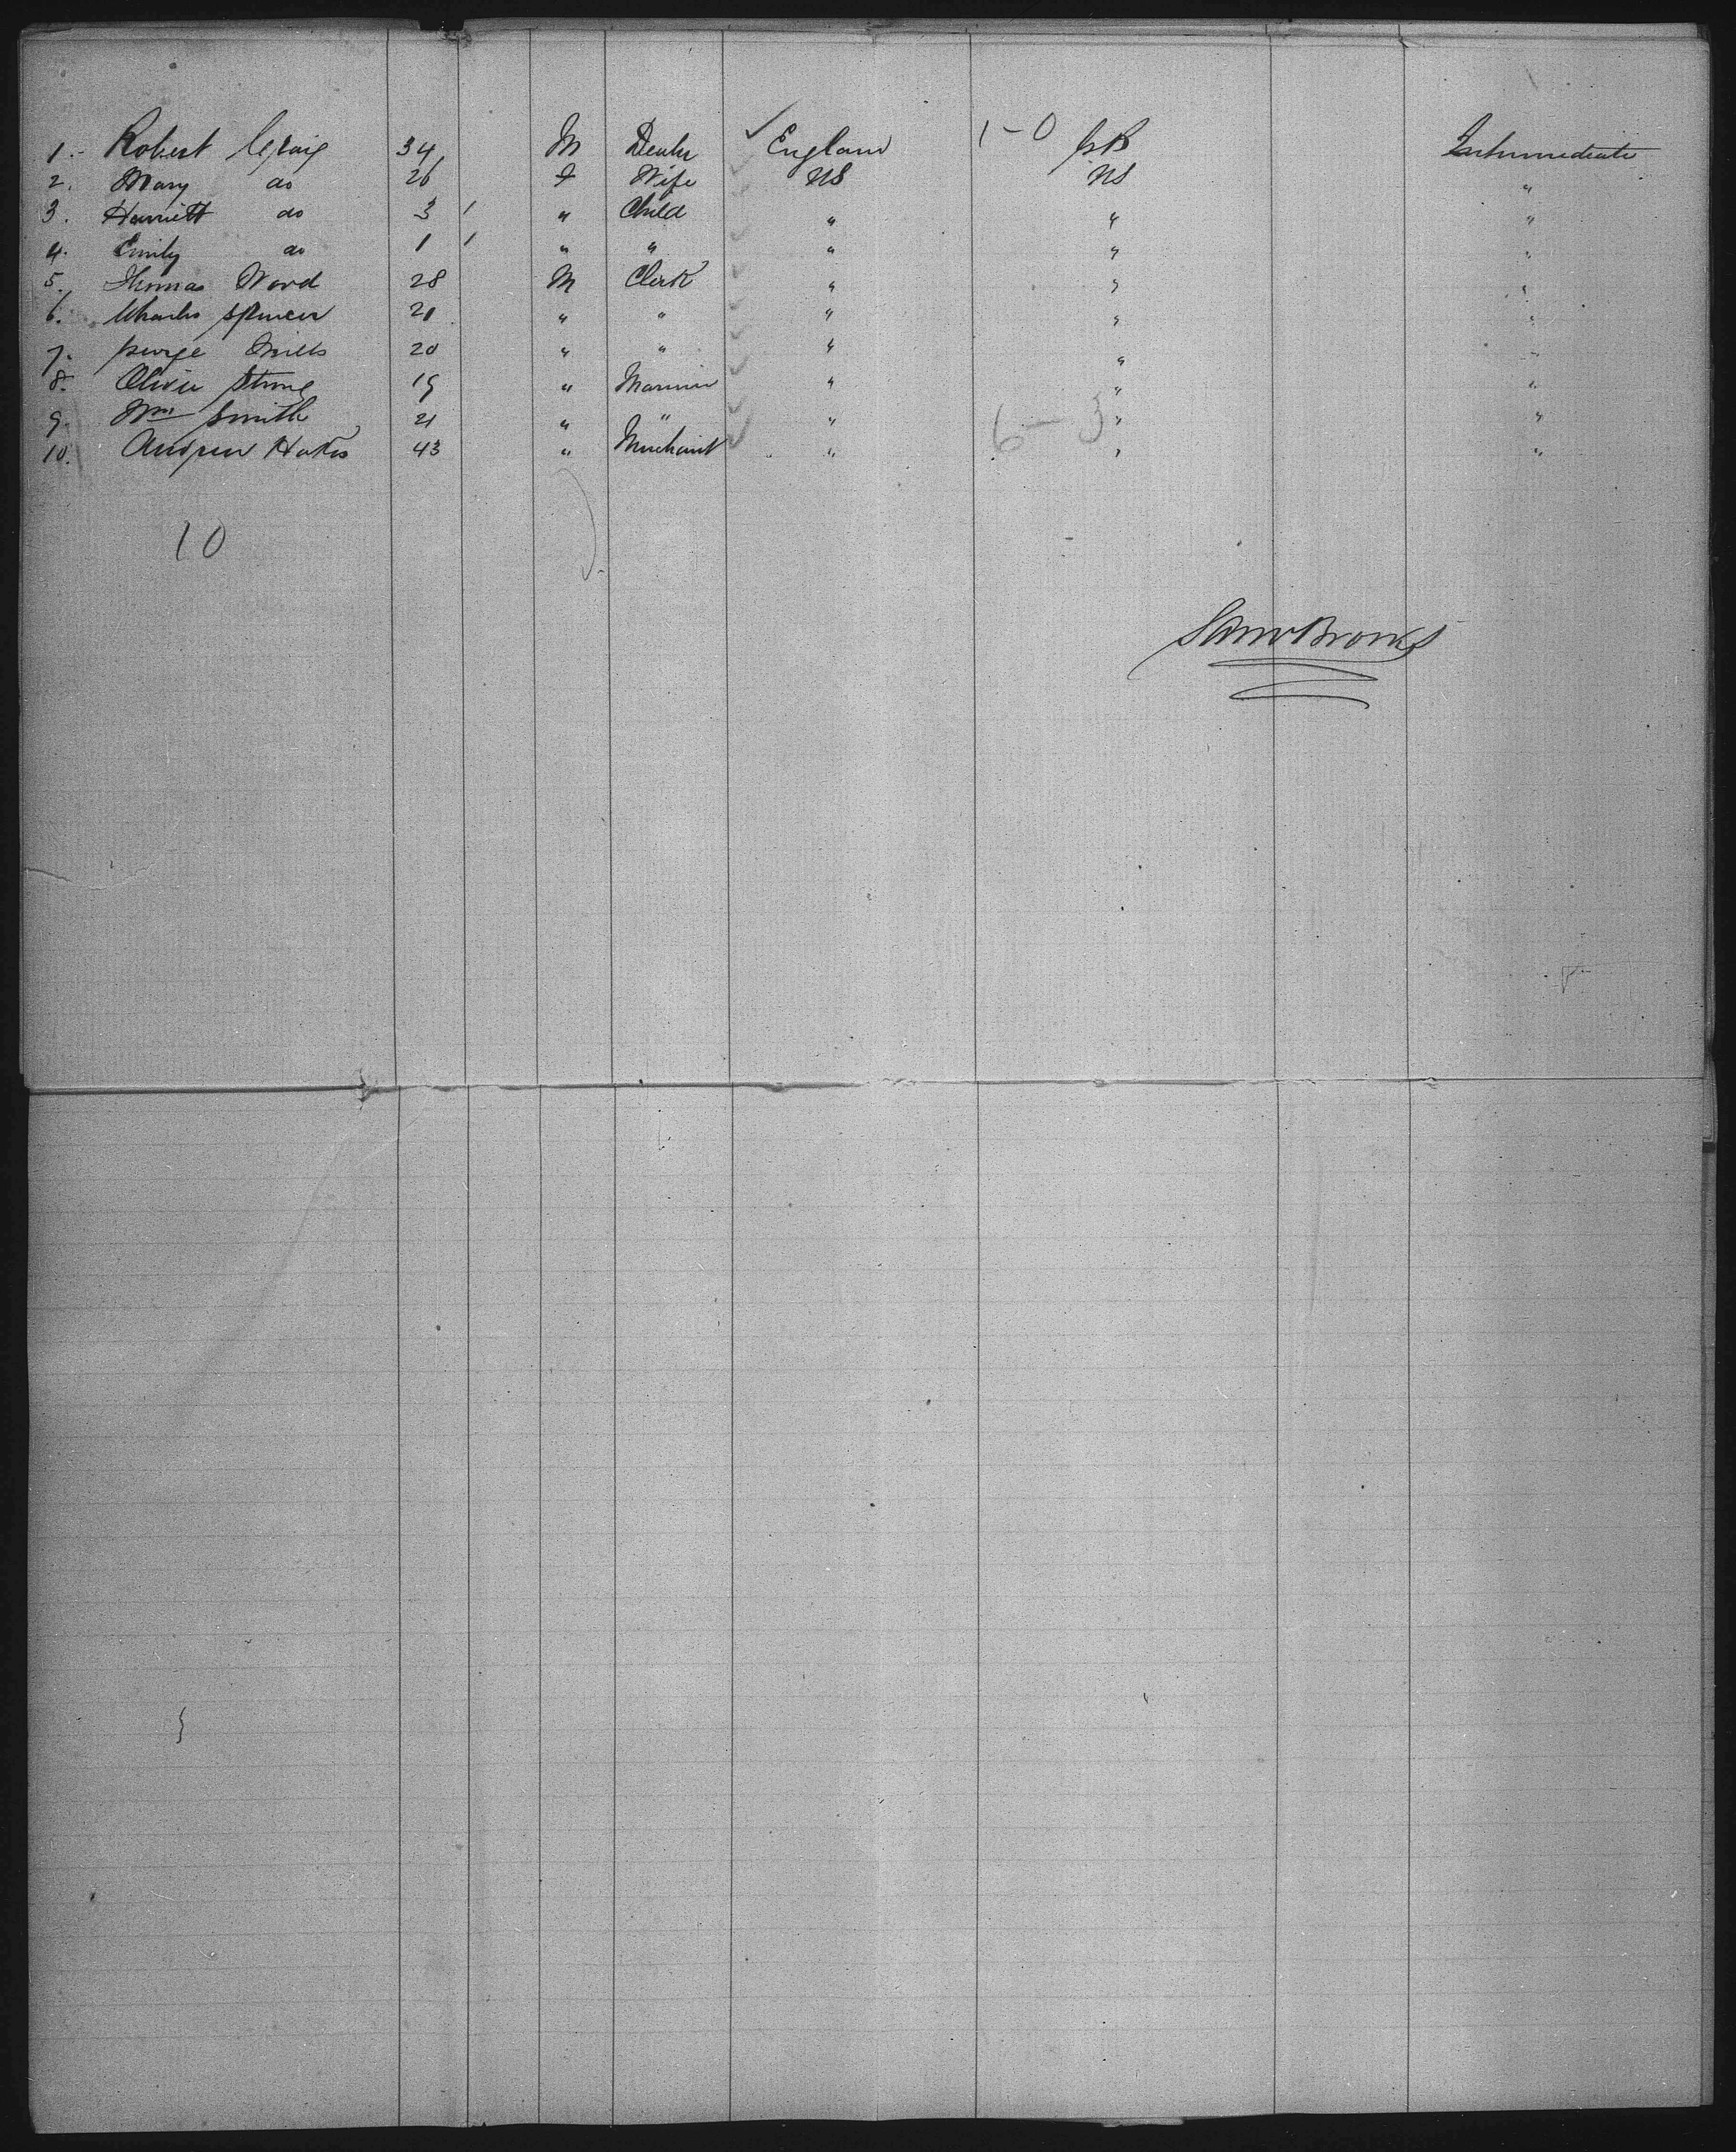 1. Robert Craig 34 M Dealer England 1-0 GB Intermediate
2. Mary do 26 F Wife US US "
3. Harriett do 3 / " Child " " "
4. Emily do 1 / " " " " "
5. Thomas Ward 28 M Clerk " " "
6. Charles Spencer 21 " " " " "
7. George Mills 20 " " " " "
8. Oliver Strong 19 " Mariner " " "
9. Wm Smith 21 " " " 6-3 " "
10. Andrew 43 " Merchant " " "
10